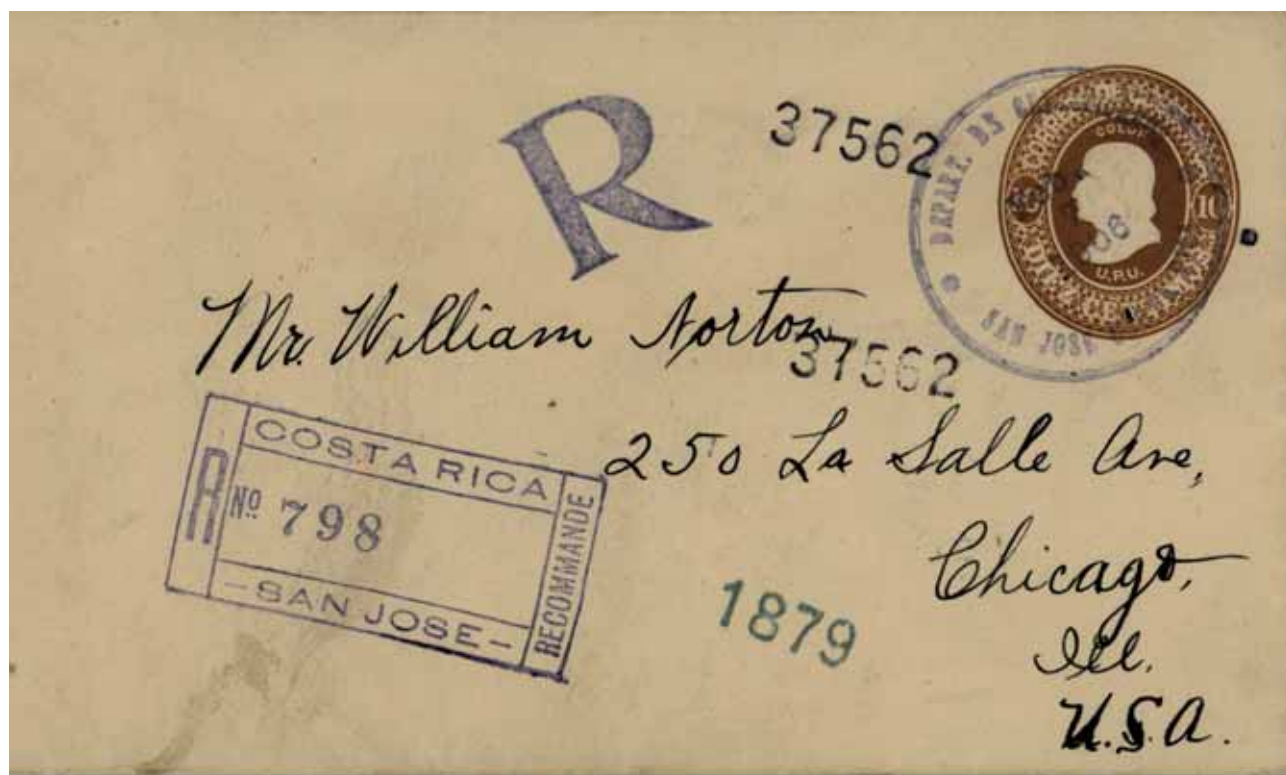 R
37562
DEPART. DE
SAN JOSE
COLON
10
U.P.U.
DIEZ CENTIMOS
Mr. William Norton
37562
250 La Salle Ave,
Chicago,
Ill.
U.S.A.
R
COSTA RICA
Nº 798
SAN JOSE
RECOMMANDE
1879